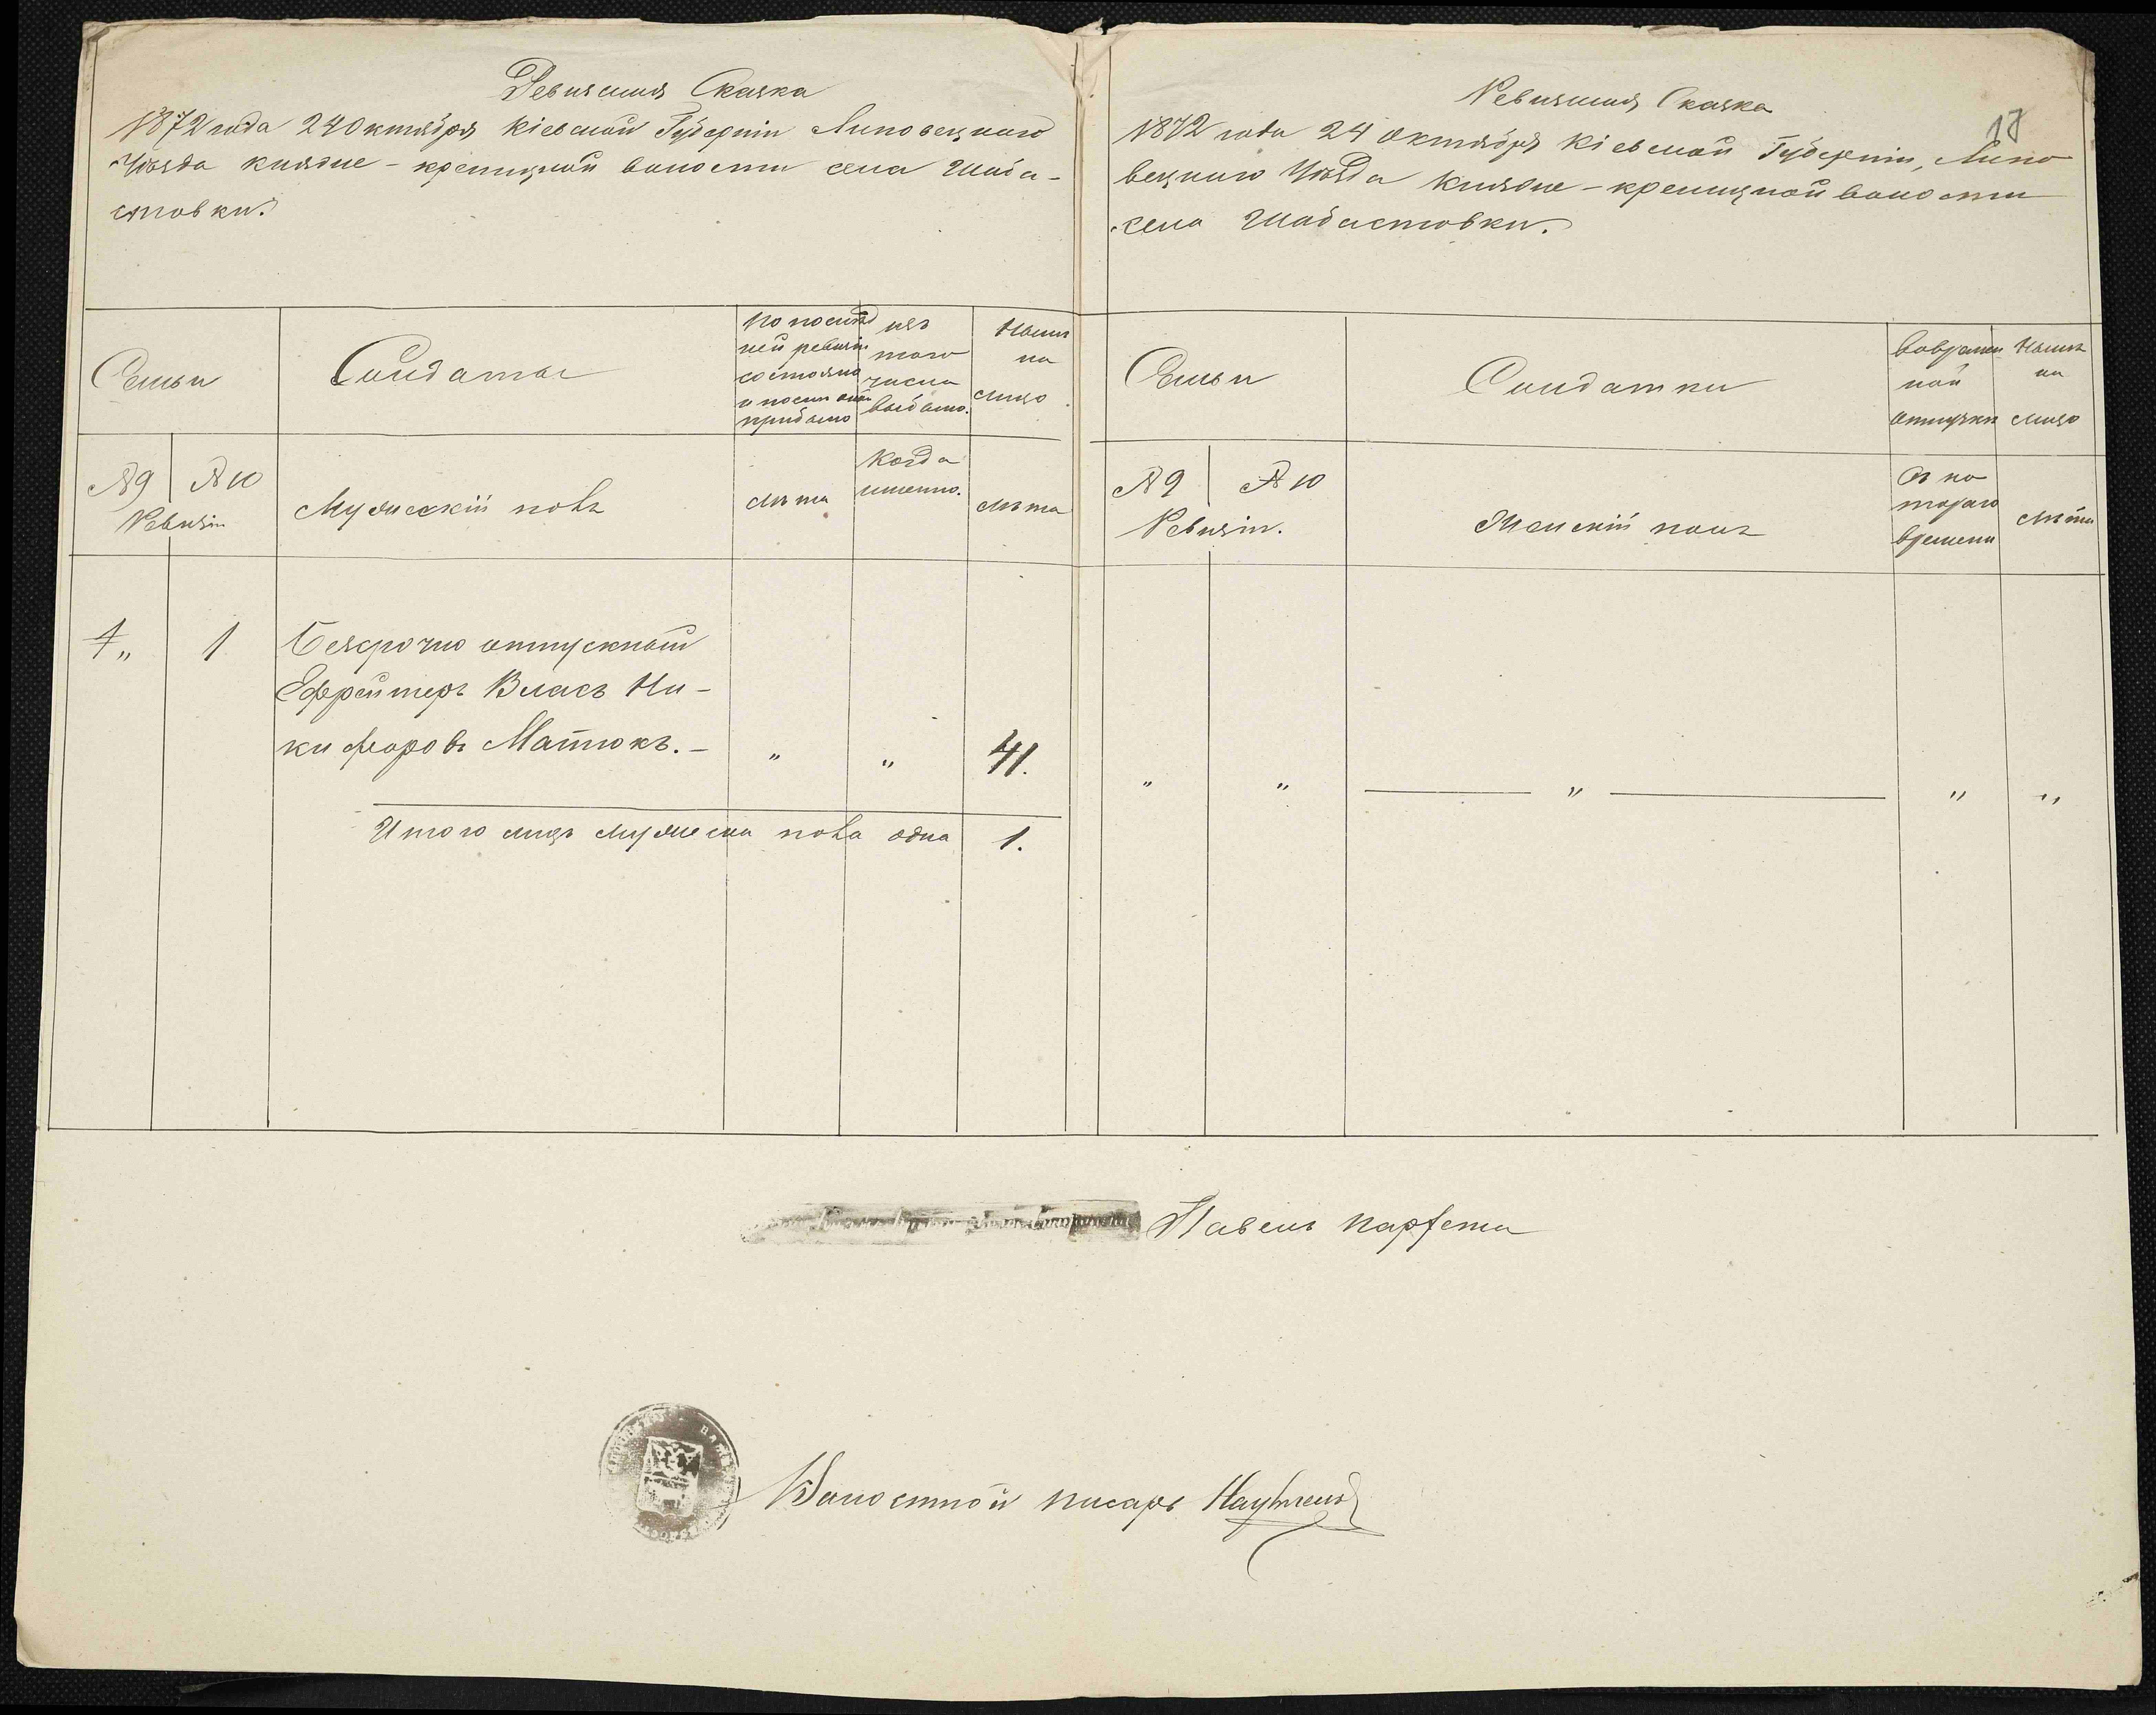 Ревизская Сказка
1872 года 24 Октября Кіевской Губерніи Липовецкаго
Уѣзда Княже-крепицкой волости села Шаба-
стовки.
Семьи
Солдаты
По послѣд
ней ревизіи
состояло
и послѣ оной
прибыло
изъ
того
числа
выбыло.
Нынѣ
на
лицо
№ 9 № 10
Ревизіи
Мужескій полъ
лѣта
Когда
именно.
лѣта
4 „ 1 Безсрочно отпускный
Ефрейторъ Власъ Ни-
кифоровъ Матюкъ. „ „ 41.
Итого лицъ мужеска пола одна 1.
17
Ревизская Сказка
1872 года 24 Октября Кіевской Губерніи, Липо
вецкаго Уѣзда Княже-крепицкой волости
села Шабастовки.
Семьи
Солдатки
Вовремен
ной
отлучки
Нынѣ
на
лицо
№ 9 № 10
Ревизіи.
Женскій полъ
Съ ко
тораго
времени
лѣта
„ „ „ „ „
Павелъ
Волостной писарь